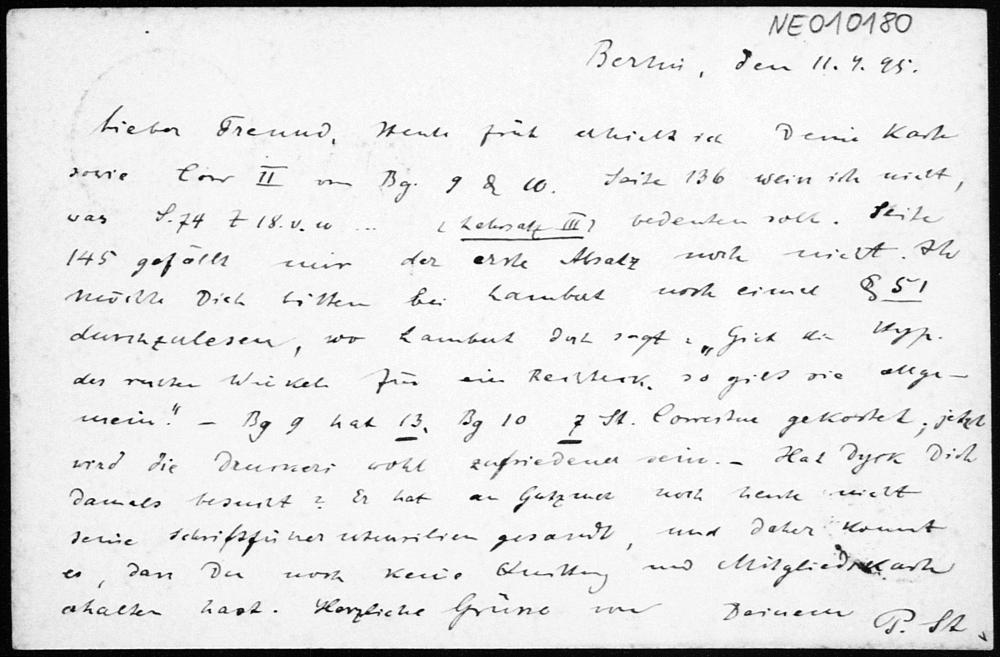 NE010180
Berlin, den 11.4.95.
Lieber Freund, Heute früh erhielt ich Deine Karte
sowie Corr II von Bg. 9 & 10. Seite 136 weiss ich nicht,
was S. 74 Z 18. v. u ... (Lehrsatz III) bedeuten soll. Seite
145 gefällt mir der erste Absatz noch nicht. Ich
möchte Dich bitten bei Lambert noch einmal § 51
durchzulesen, wo Lambert doch sagt: „Gilt die Hyp.
des rechten Winkels für ein Rechteck, so gilt sie allge-
mein." – Bg 9 hat 13, Bg 10 7 St. Correctur gekostet; jetzt
wird die Druckerei wohl zufriedener sein. – Hat Dyck Dich
damals besucht? Er hat an Gutzmer noch heute nicht
seine Schriftführerutensilien gesandt, und daher kommt
es, dass Du noch keine Quittung und Mitgliedskarte
erhalten hast. Herzliche Grüsse von Deinem P. St.